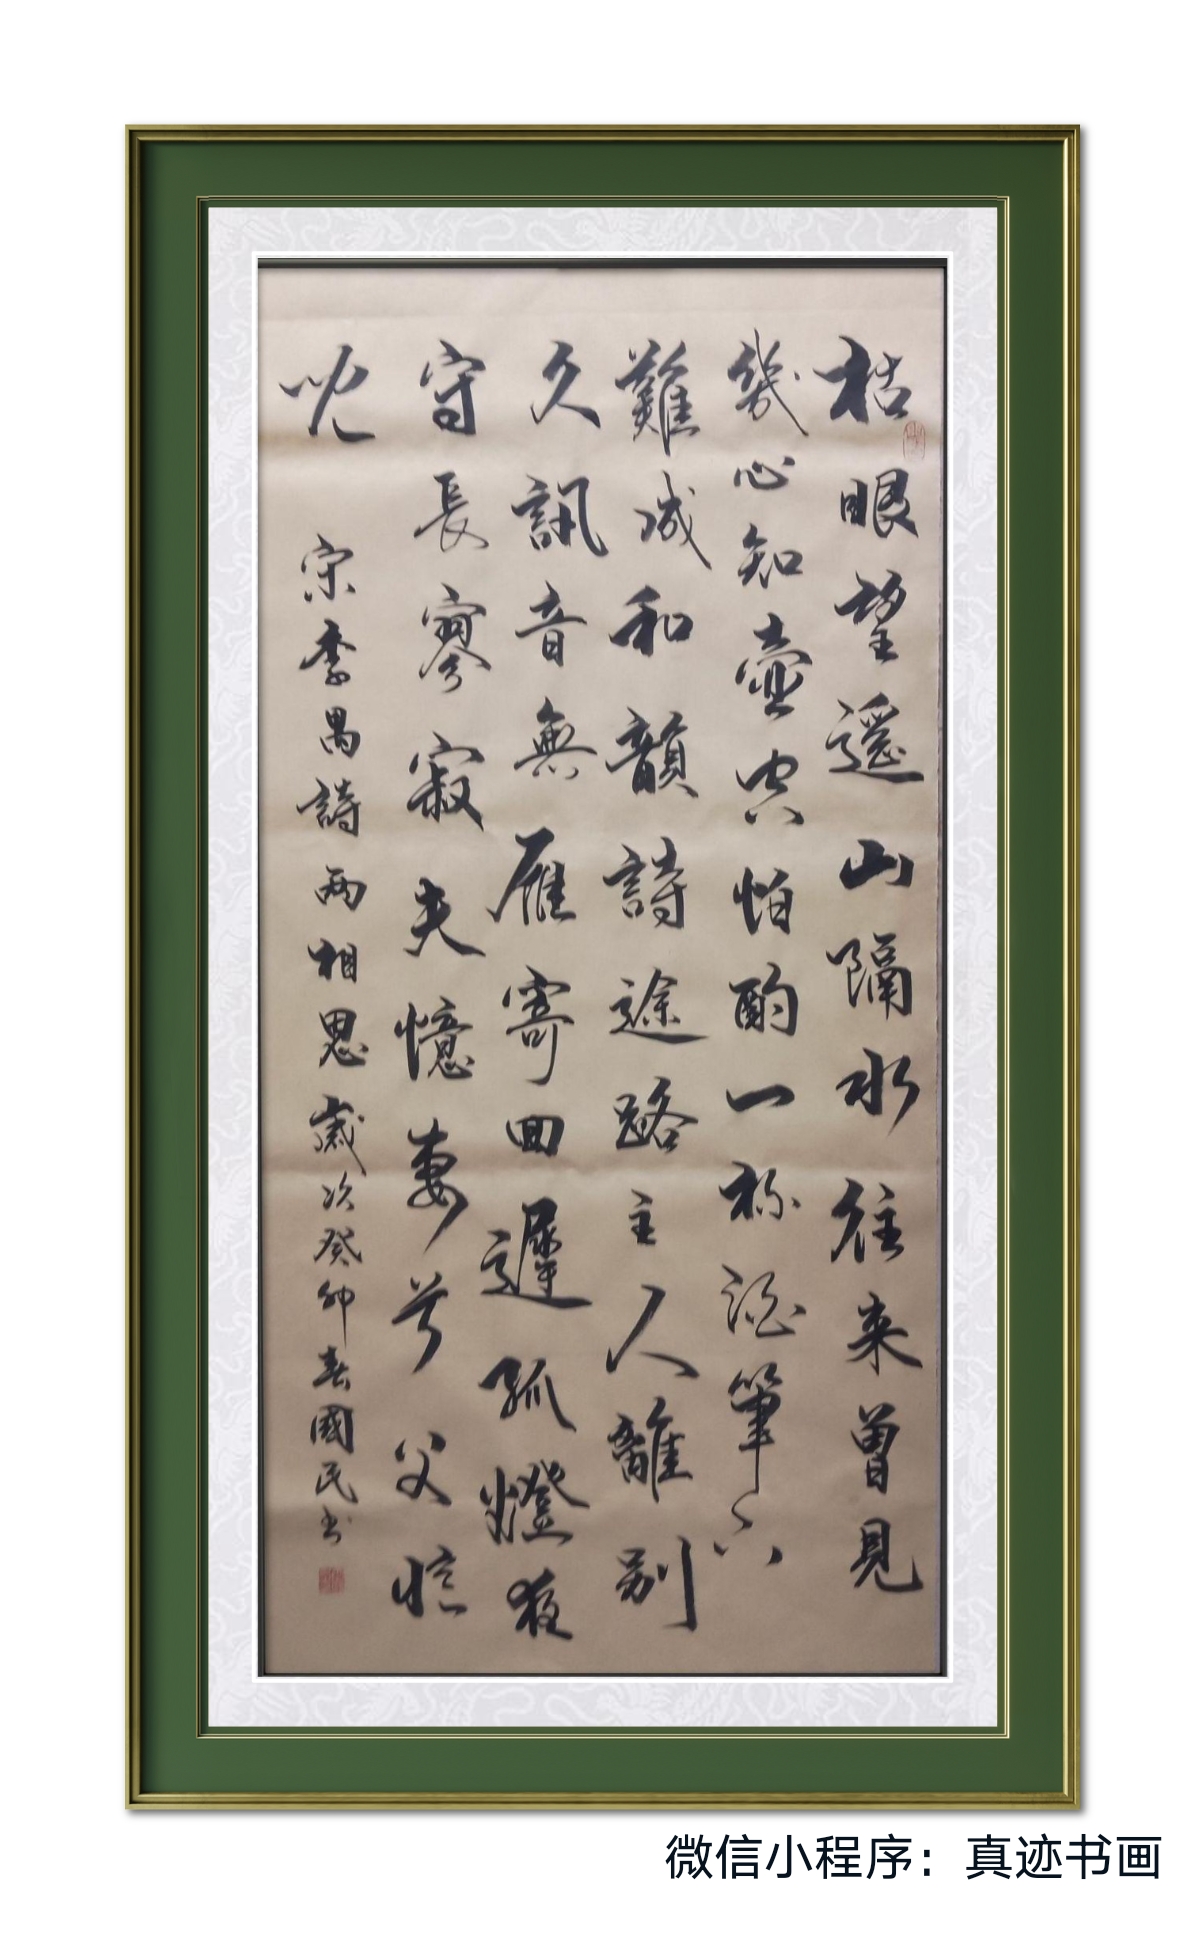 枯眼望遥山隔水往来曾見
幾心知壺空怕酌一杯酒筆下
難成和韻詩途路主人離別
久訊音無雁寄回遲孤燈夜
守長寥寂夫憶妻兮父憶
兒
宋李禺詩兩相思歲次癸卯春國民书
微信小程序：真迹书画